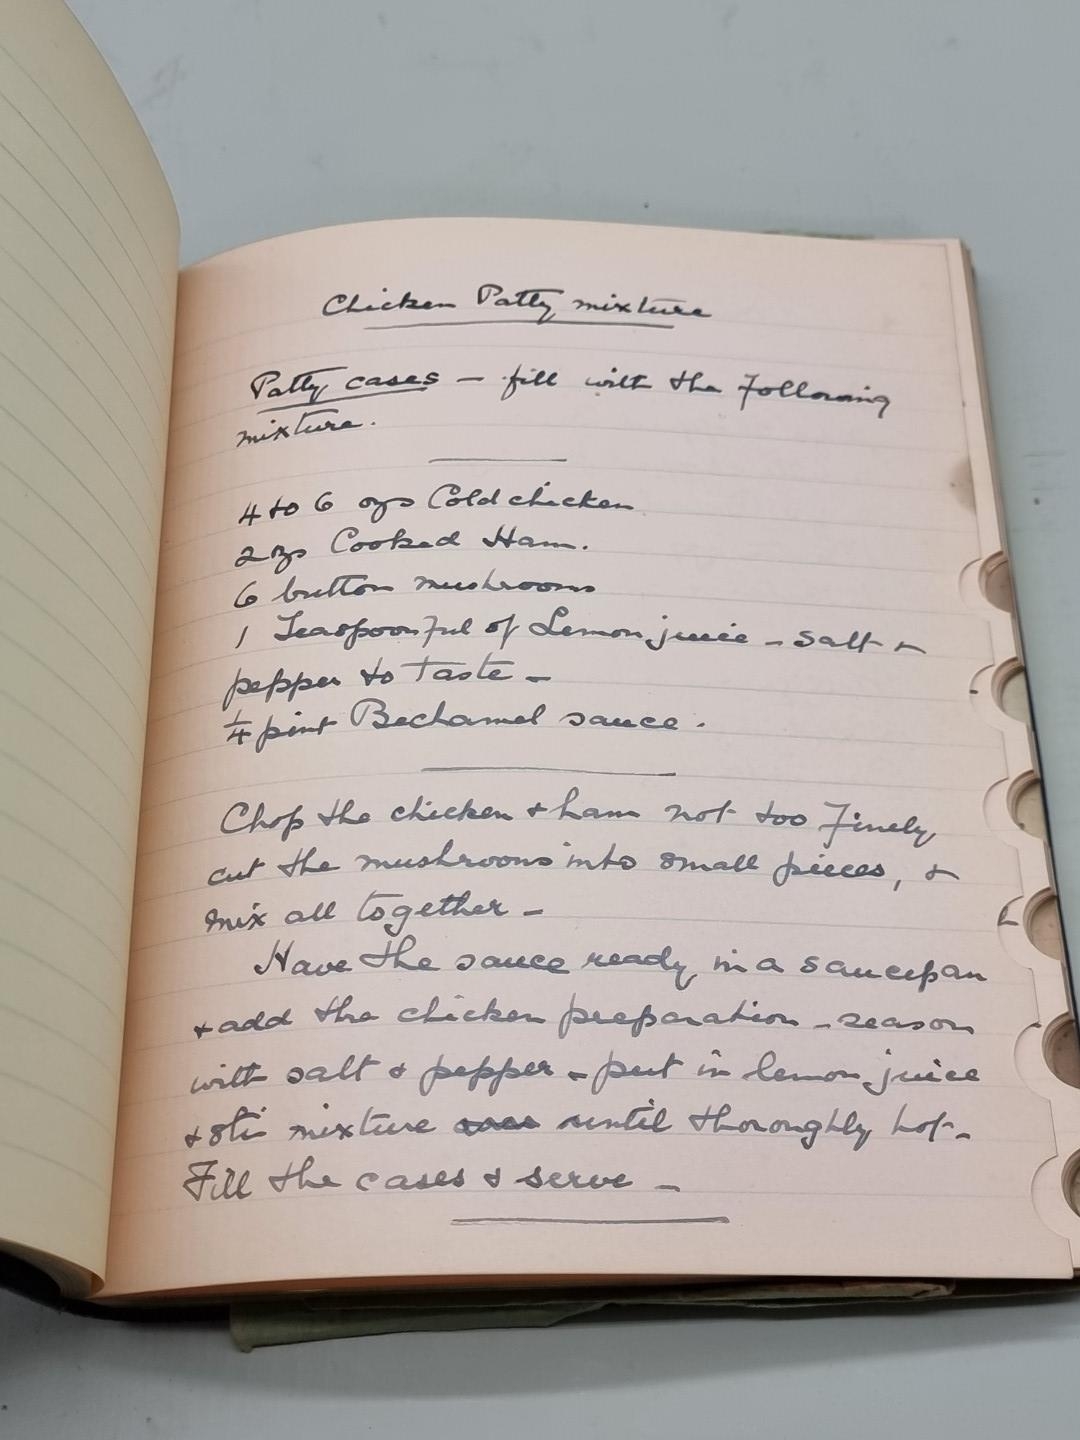 Chicken Patty mixture
Patty cases – fill with the following
mixture.
4 to 6 ozs Cold chicken
2 ozs Cooked Ham.
6 button mushrooms
1 Teaspoonful of Lemon juice – salt &
pepper to taste –
1/4 pint Bechamel sauce.
Chop the chicken & ham not too finely
cut the mushrooms into small pieces, &
mix all together –
Have the sauce ready in a saucepan
& add the chicken preparation – season
with salt & pepper – put in lemon juice
& stir mixture until thoroughly hot –
Fill the cases & serve –